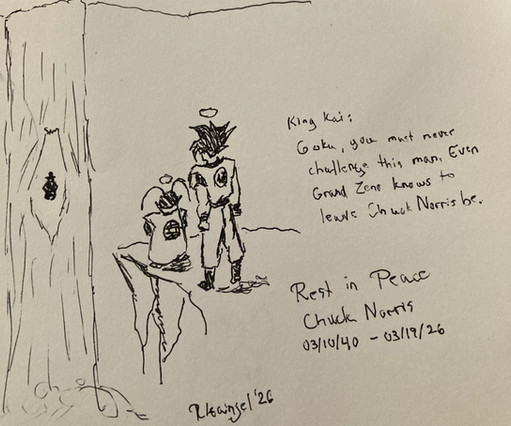 King Kai:
Goku, you must never
challenge this man. Even
Grand Zeno knows to
leave Chuck Norris be.
Rest in Peace
Chuck Norris
03/10/40 - 03/19/26
'26